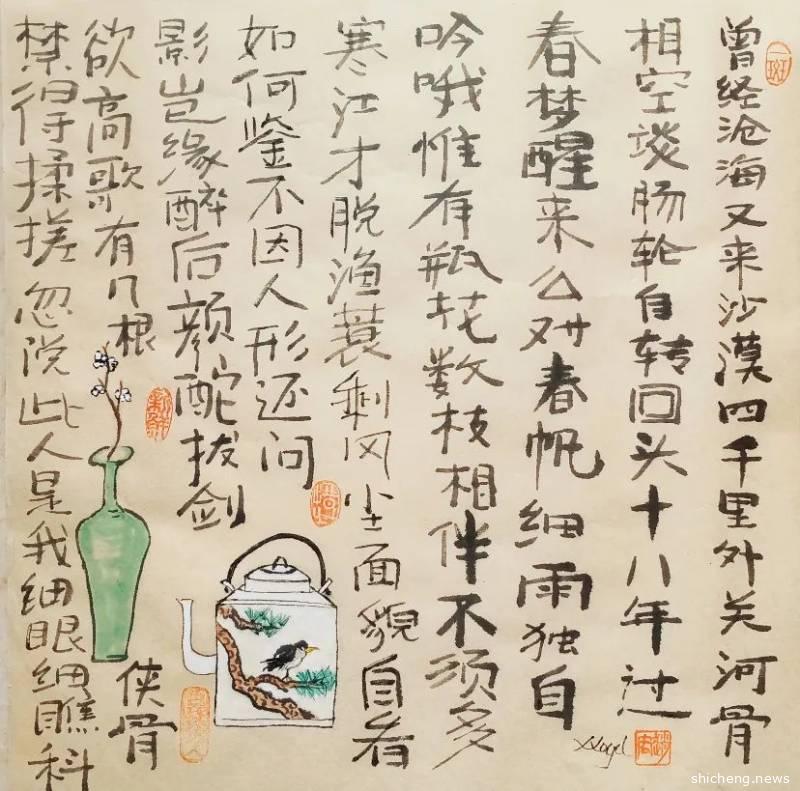 一斑
曾经沧海又来沙漠四千里外关河骨
相空谈肠轮自转回头十八年过
春梦醒来么对春帆细雨独自
吟哦惟有瓶花数枝相伴不须多
寒江才脱渔蓑剩风尘面貌自看
如何鉴不因人形还问
影岂缘醉后颜酡拔剑
欲高歌有几根侠骨
禁得揉搓忽说此人是我细眼细瞧科
shicheng.news